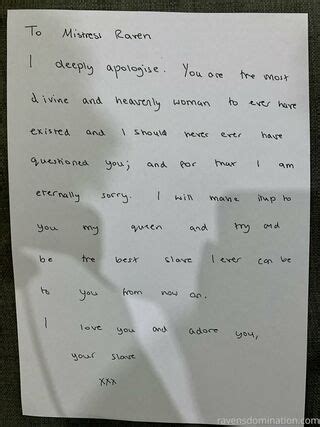 To Mistress Raven
I deeply apologise. You are the most
divine and heavenly woman to ever have
existed and I should never ever have
questioned you; and for that I am
eternally sorry. I will make itup to
you my queen and try and
be the best slave I ever can be
to you from now on.
I love you and adore you,
your slave
xxx
ravensdomination.com